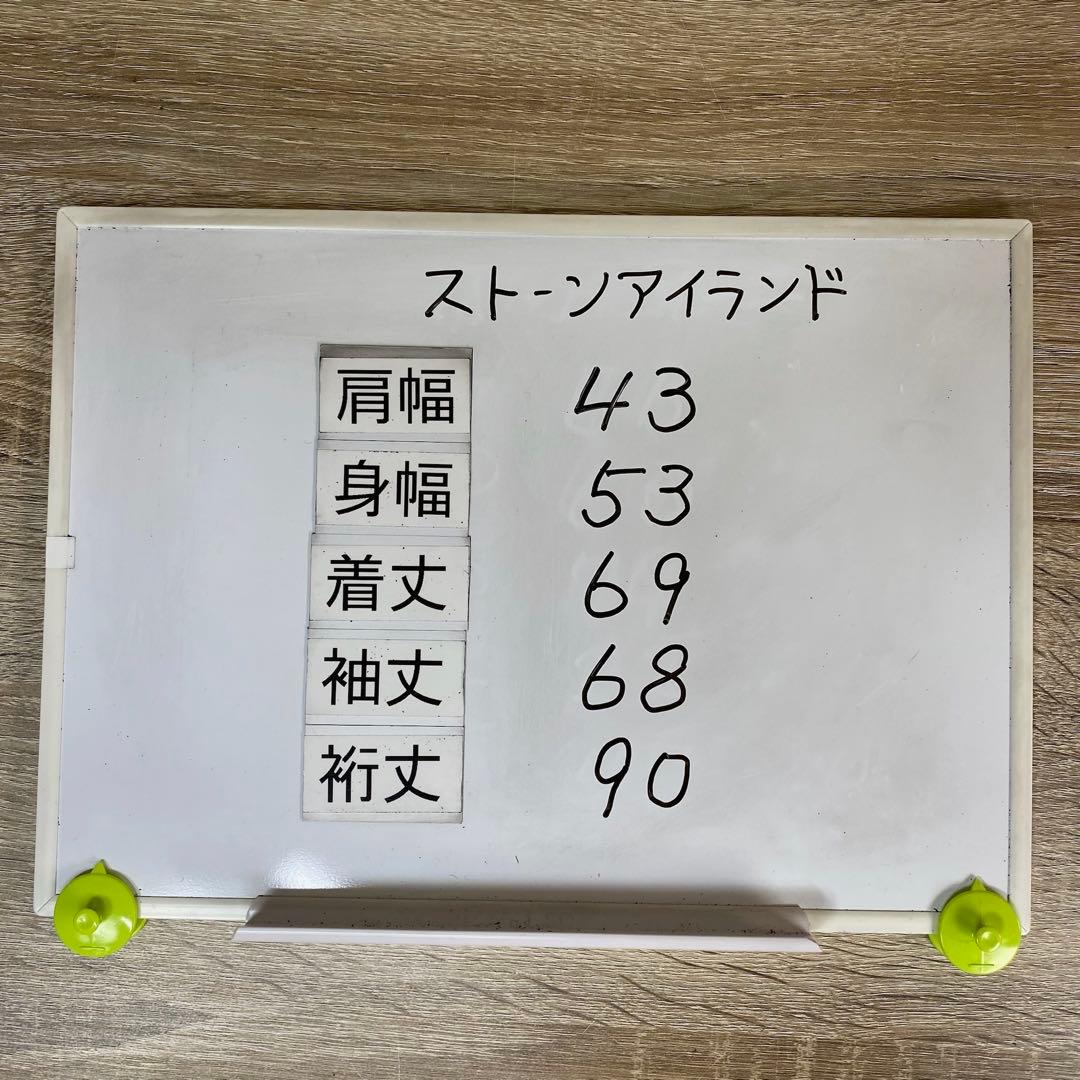 ストーンアイランド
肩幅 43
身幅 53
着丈 69
袖丈 68
裄丈 90